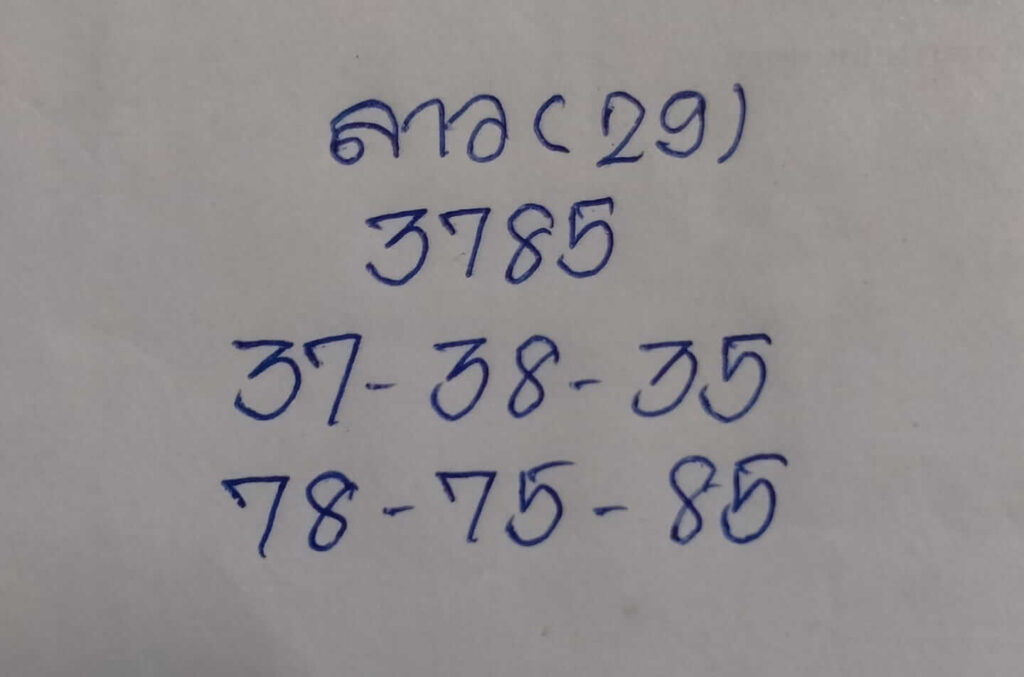 ลาว (29)
3785
37-38-35
78-75-85